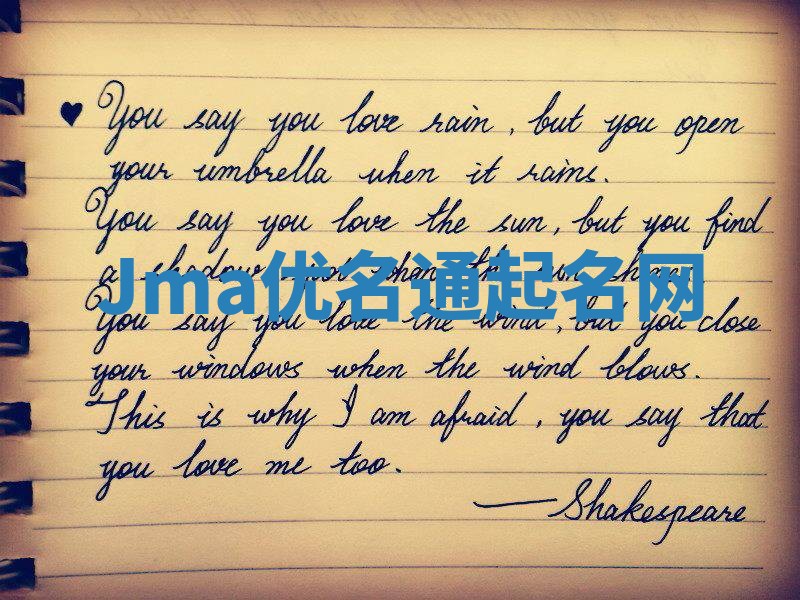 ♥ You say you love rain, but you open
your umbrella when it rains.
You say you love the sun, but you find
a shadow when the sun shines
Jma优名通起名网
You say you love the wind, but you close
your windows when the wind blows.
This is why I am afraid, you say that
you love me too.
—Shakespeare